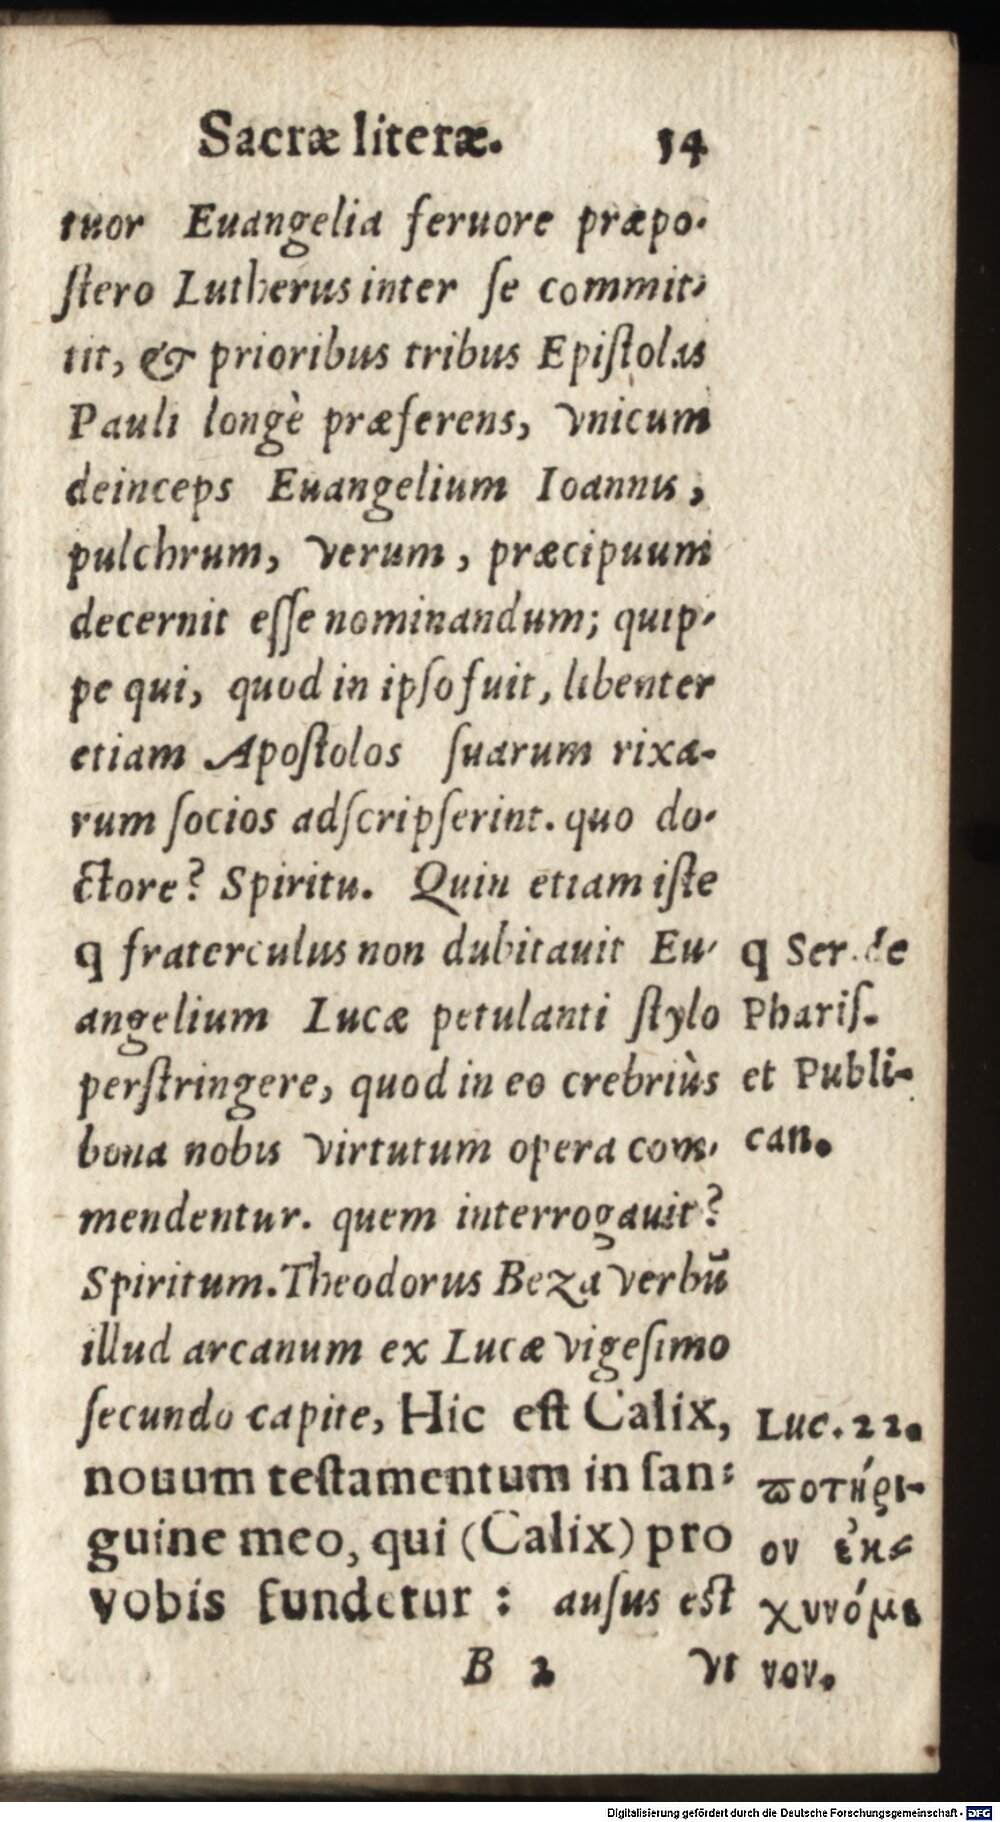 Sacræ literæ. 14
tuor Euangelia feruore præpo-
ſtero Lutherus inter ſe commit-
tit, & prioribus tribus Epiſtolas
Pauli longè præferens, vnicum
deinceps Euangelium Ioannis,
pulchrum, verum, præcipuum
decernit eſſe nominandum; quip-
pe qui, quod in ipſo fuit, libenter
etiam Apoſtolos ſuarum rixa-
rum ſocios adſcripſerint. quo do-
ctore? Spiritu. Quin etiam iſte
q fraterculus non dubitauit Eu-
angelium Lucæ petulanti ſtylo
perſtringere, quod in eo crebriùs
bona nobis virtutum opera com-
mendentur. quem interrogauit?
Spiritum. Theodorus Beza verbũ
illud arcanum ex Lucæ vigeſimo
ſecundo capite, Hic eſt Calix,
nouum teſtamentum in ſan-
guine meo, qui (Calix) pro
vobis fundetur: auſus eſt
B 2 vt
q Ser. de
Phariſ.
et Publi-
can.
Luc. 22.
ϖοτήρι-
ον ἐκ-
χυνόμε
νον.
Digitalisierung gefördert durch die Deutsche Forschungsgemeinschaft - DFG